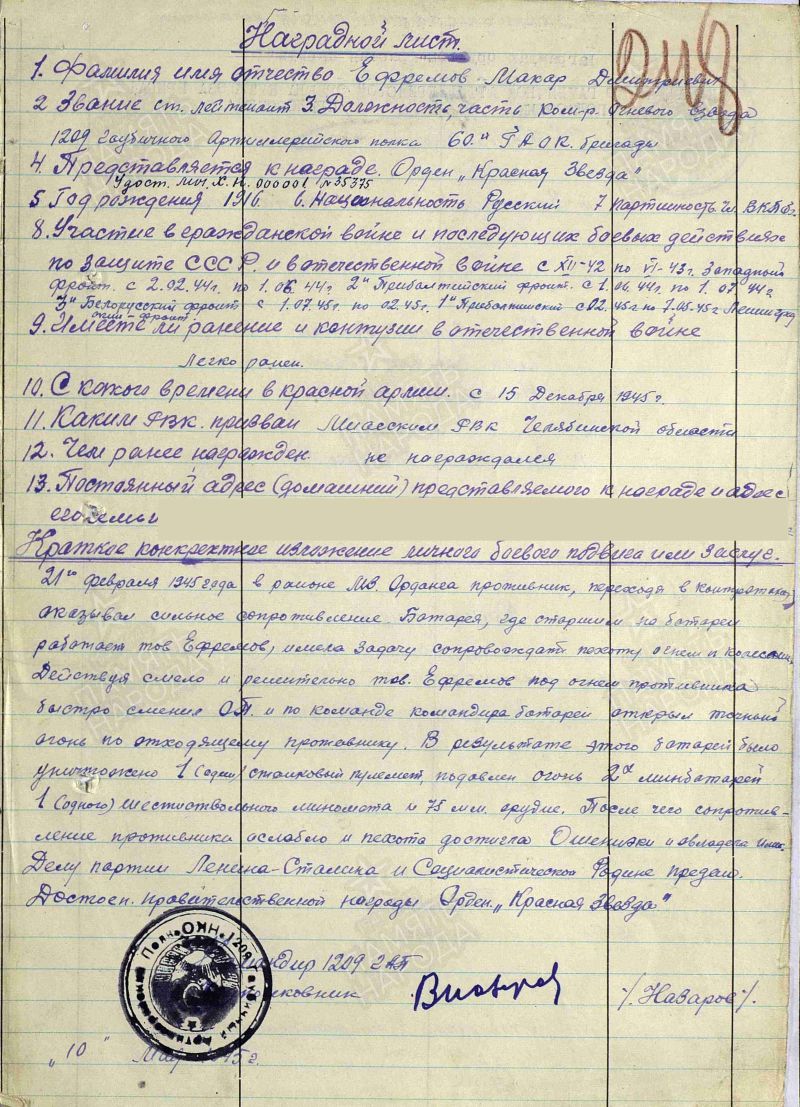 Наградной лист.
2118
1. Фамилия имя отчество Ефремов Макар Дмитриевич
2 Звание ст. лейтенант 3. Должность, часть ком-р. огневого взвода
1209 гаубичного Артиллерийского полка 60й ГАОК. бригады
4. Представляется к награде. Орден „Красная Звезда"
Удост. лич. Х. Н. 000001 №35375
5 Год рождения 1916 6. Национальность Русский 7 Партийность. чл. ВКПб
8. Участие в гражданской войне и последующих боевых действиях
по защите СССР. и в отечественной войне с XII-42 по VI-43г. Западный
фронт. с 2.02.44г. по 1.06.44г 2й Прибалтийский фронт. с 1.06.44г по 1.07.44г
3й Белорусский фронт с 1.07.45г. по 02.45г. 1й Прибалтийский с 02.45г по 7.05.45г Ленинград
ский-фронт.
9. Имеете ли ранение и контузии в отечественной войне
легко ранен.
10. С какого времени в красной армии. с 15 Декабря 1945г.
11. Каким РВК. призван Миасским РВК Челябинской области
12. Чем ранее награжден не награждался
13. Постоянный адрес (домашний) представляемого к награде и адрес
его семьи
Краткое конкретное изложение личного боевого подвига или заслуг.
21го февраля 1945 года в районе МЗ. Орданга противник, переходя в контратаки,
оказывал сильное сопротивление. Батарея, где старшим на батареи
работает тов Ефремов, имела задачу сопровождать пехоту огнем и колесами.
Действуя смело и решительно тов. Ефремов под огнем противника
быстро сменил ОП. и по команде командира батареи открыл точный
огонь по отходящему противнику. В результате этого батарей было
уничтожено 1 (один) станковый пулемет, подавлен огонь 2х минбатарей
1 (одного) шестиствольного миномета и 75 мм. орудие. После чего сопротив-
ление противника ослабло и пехота достигла и овладела ими.
Делу партии Ленина-Сталина и Социалистической Родине предан.
Достоен. правительственной награды Орден „Красная Звезда"
Командир 1209 ГАП
полковник /. Назаров /.
„10" Мая 1945г.
НКО. 1209 Гаубичный Артиллерийский Полк
ПАМЯТЬ НАРОДА